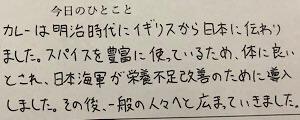 今日のひとこと
カレーは明治時代にイギリスから日本に伝わり
ました。スパイスを豊富に使っているため、体に良い
とされ、日本海軍が栄養不足改善のために導入
しました。その後、一般の人々へと広まっていきました。